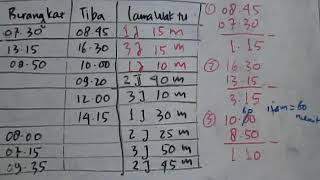 Berangkat Tiba Lama Waktu
07.30 08.45 1 J 15 m
13.15 16.30 3 J 15 m
08.50 10.00 1 J 10 m
09.20 2 J 40 m
12.00 3 J 10 m
14.15 1 J 30 m
08.00 2 J 25 m
07.15 3 J 50 m
09.35 2 J 45 m
① 08.45
07.30 -
1.15
② 16.30
13.15 -
3.15
60 1 jam = 60 menit
③ 10.00
8.50 -
1.10